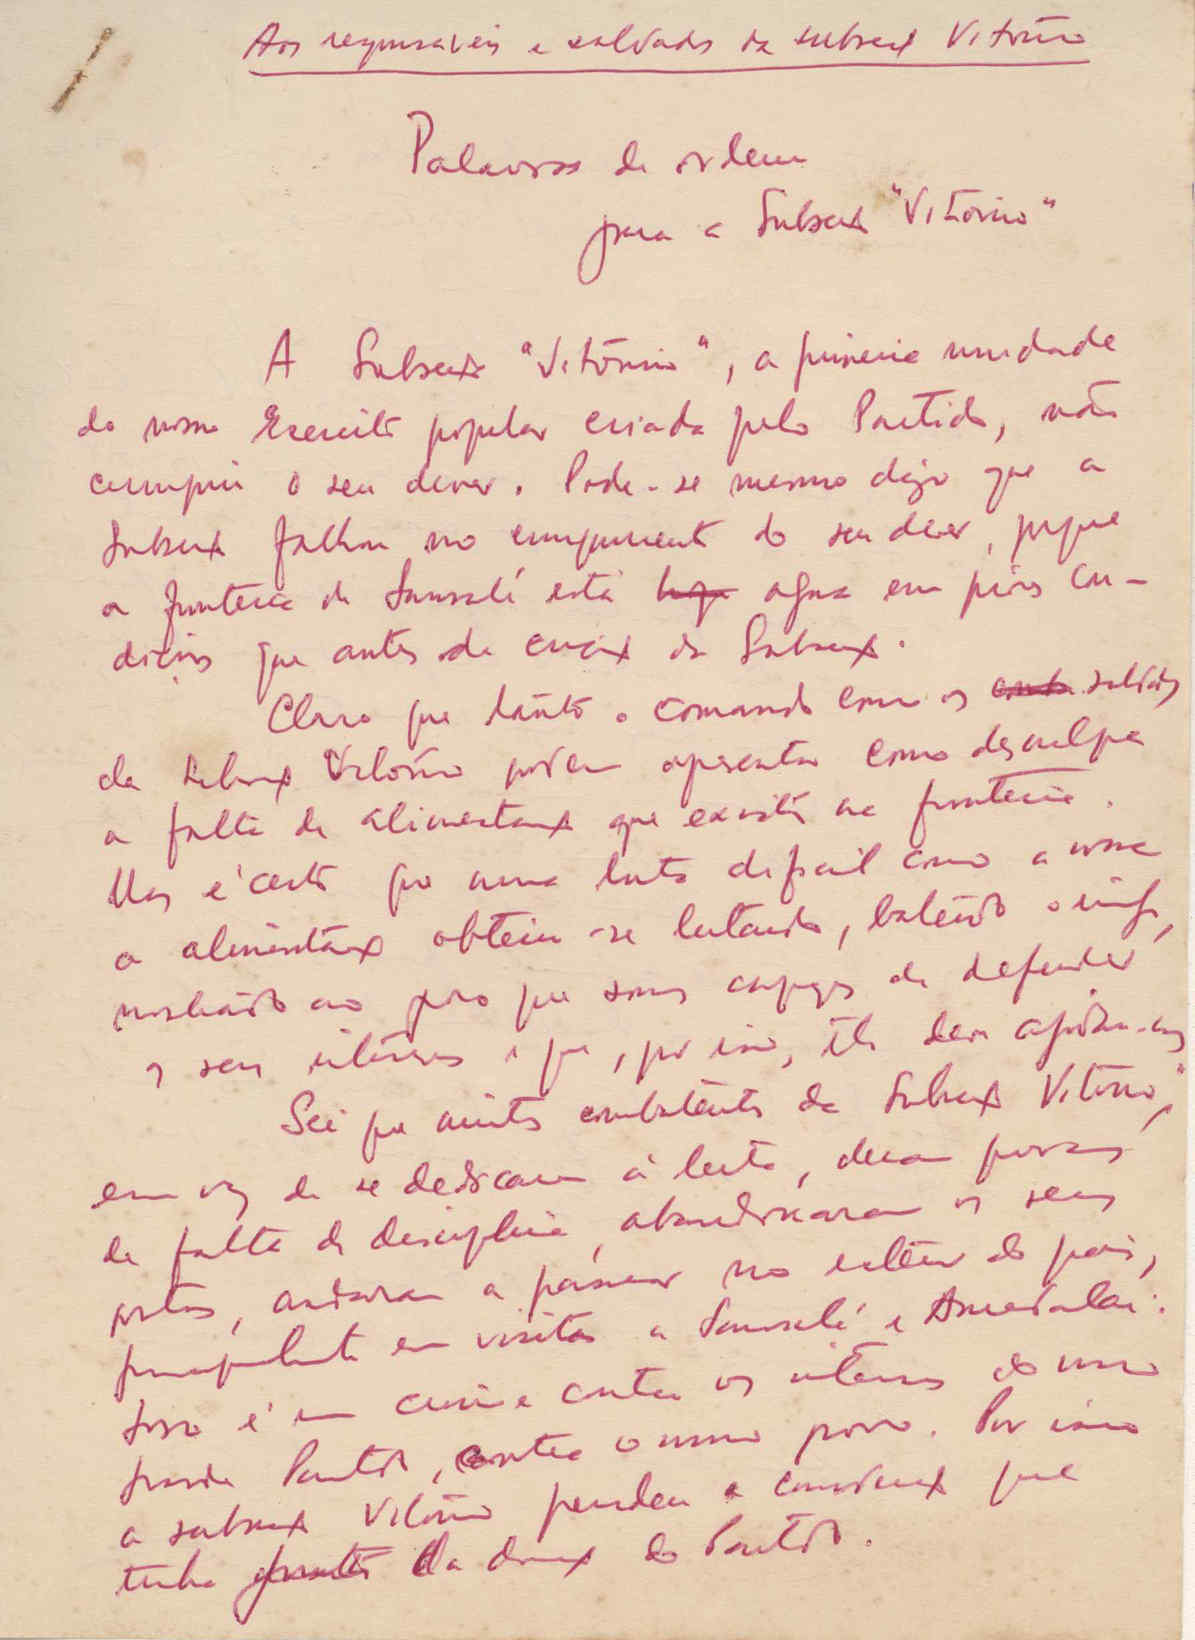 Aos responsaveis e soldados da subsecção Vitório
Palavras de ordem
para a Subsecção "Vitorino"
A Subsecção "Vitórino", a primeira unidade
do nosso Exercito popular criada pelo Partido, não
cumpriu o seu dever. Pode-se mesmo dizer que a
Subsecção falhou no cumprimento do seu dever, porque
a fronteira de Sansalé está agora em piores con-
dições que antes da criação da Subsecção.
Claro que tanto o comando como os soldados
da Subsecção Vitório podem apresentar como desculpa
a falta de alimentação que existe na fronteira.
Mas é certo que numa luta dificil como a nossa
a alimentação obtem-se lutando, batendo o inimigo,
mostrando ao povo que somos capazes de defender
os seus interesses e que, por isso, ele deve apoiar-nos
Sei que muitos combatentes da Subsecção Vitorino,
em vez de se dedicarem à luta, deram provas
de falta de disciplina, abandonaram os seus
postos, andaram a passear no exterior do pais,
principalmente em visitas a Sansalé e
Isso é um crime contra os interesses do nosso
grande Partido, contra o nosso povo. Por isso
a subsecção Vitório perdeu a confiança que
tinha da direcção do Partido.